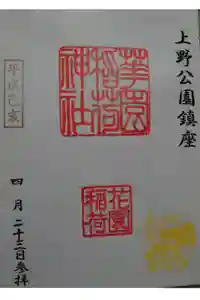 上野公園鎮座
華園
稲荷
神社
花園
稲荷
平成己亥
四月二十三日参拝